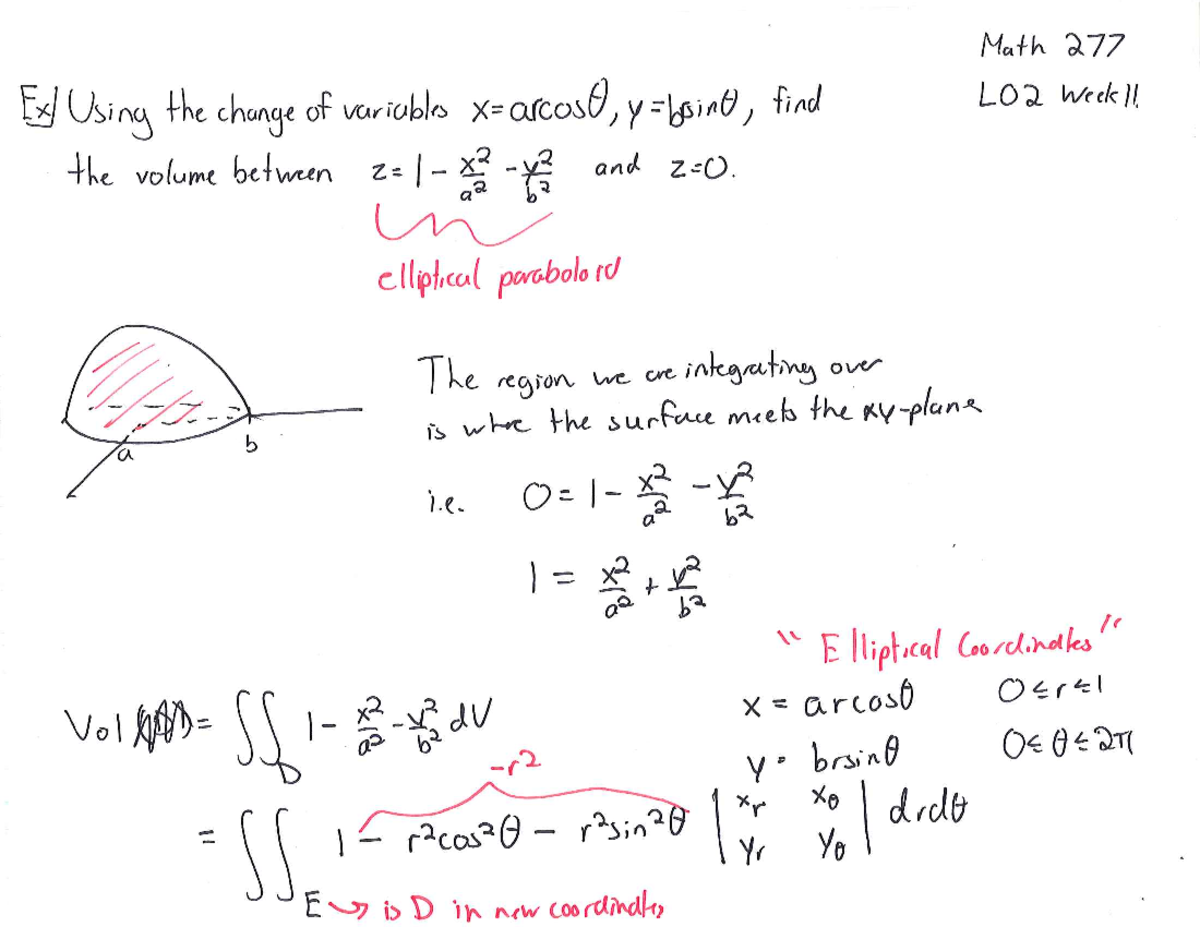 Math 277
L02 Week 11.
Ex/ Using the change of variables x=arcosθ, y=bsinθ, find
the volume between z=1-x²/a²-y²/b² and z=0.
elliptical paraboloid
The region we are integrating over
is where the surface meets the xy-plane
a
b
i.e. 0=1-x²/a²-y²/b²
1=x²/a²+y²/b²
"Elliptical Coordinates"
x=arcosθ 0≤r≤1
y=brsinθ 0≤θ≤2π
Vol = ∬_D 1-x²/a²-y²/b² dV
-r²
= ∬_E 1-r²cos²θ-r²sin²θ |x_r x_θ y_r y_θ| drdθ
E↝ is D in new coordinates